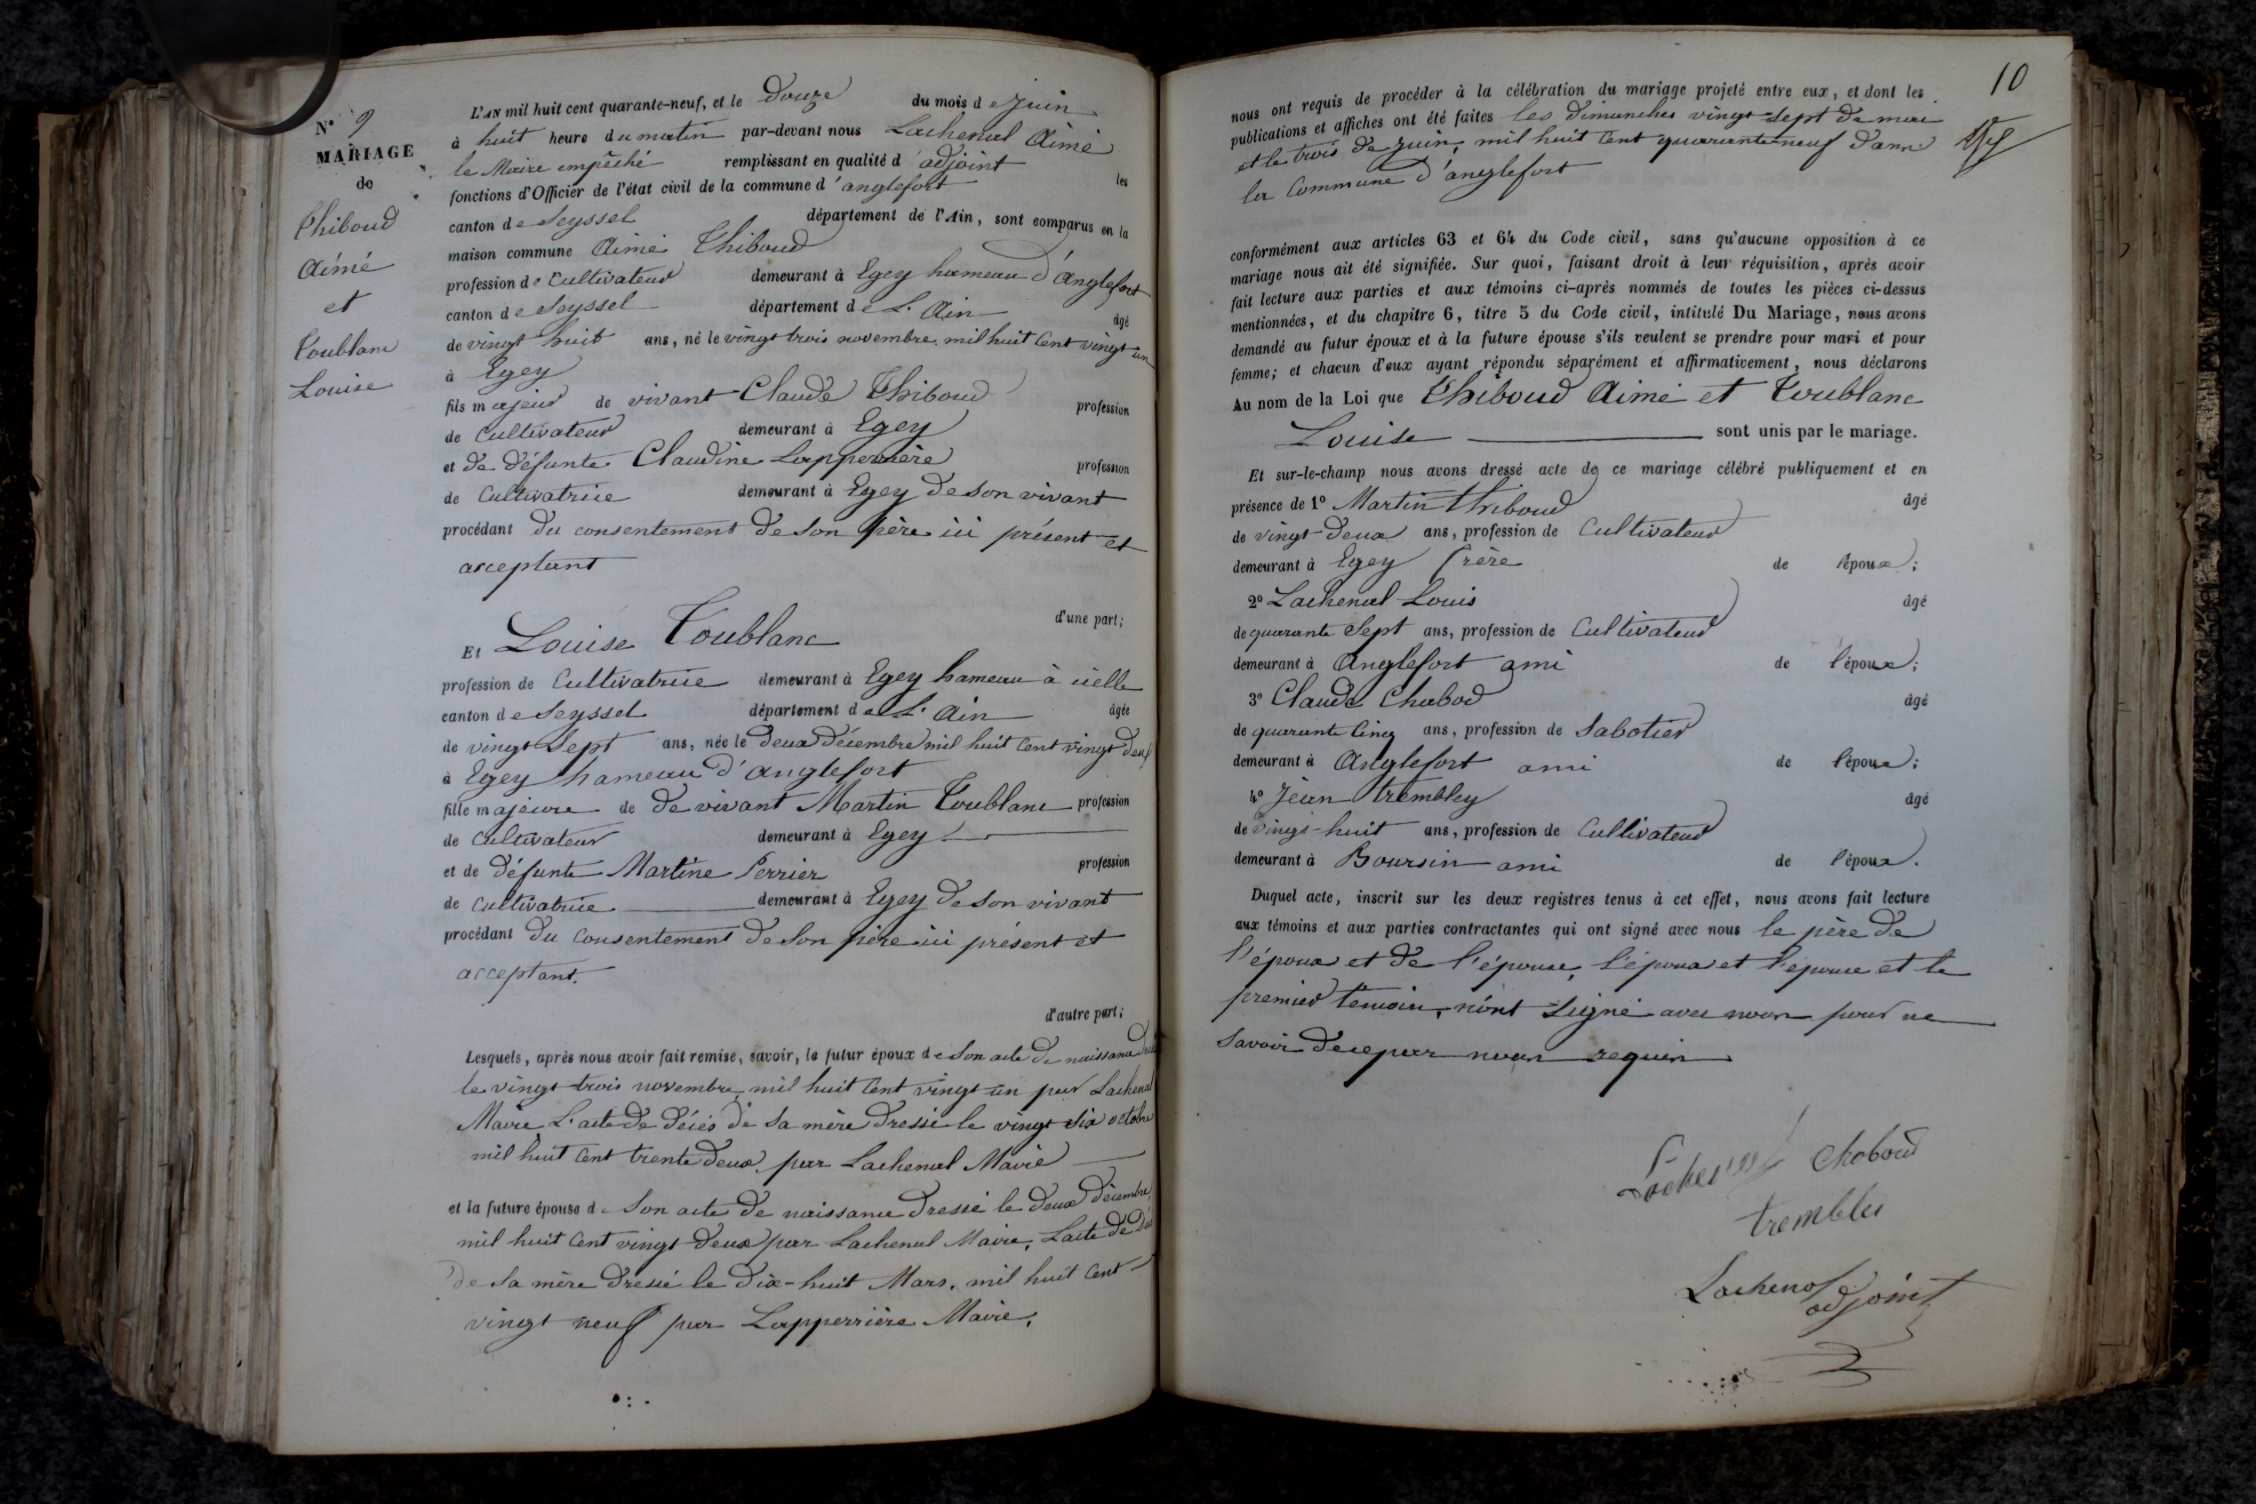 N° 9
MARIAGE
de
Thiboud
Aimé
et
Toublanc
Louise
L'AN mil huit cent quarante-neuf, et le douze du mois de Juin
à huit heure du matin par-devant nous Lachenal Aimé
le Maire empêché remplissant en qualité d'adjoint les
fonctions d'Officier de l'état civil de la commune d'anglefort
canton de Seyssel département de l'Ain, sont comparus en la
maison commune Aimé Thiboud
profession de Cultivateur demeurant à Egey hameau d'Anglefort
canton de Seyssel département de L'Ain âgé
de vingt huit ans, né le vingt trois novembre mil huit Cent vingt un
à Egey
fils majeur de vivant Claude Thiboud profession
de Cultivateur demeurant à Egey
et de défunte Claudine Lapperrière profession
de Cultivatrice demeurant à Egey de son vivant
procédant du consentement de son père ici présent et
acceptant
d'une part;
Et Louise Toublanc
profession de Cultivatrice demeurant à Egey hameau à icelle
canton de Seyssel département de L'Ain âgée
de vingt Sept ans, née le deux Décembre mil huit Cent vingt deux
à Egey hameau d'anglefort
fille majeure de de vivant Martin Toublanc profession
de Cultivateur demeurant à Egey
et de défunte Martine Perrier profession
de Cultivatrice demeurant à Egey de son vivant
procédant du Consentement de son père ici présent et
acceptant.
d'autre part;
Lesquels, après nous avoir fait remise, savoir, le futur époux de Son acte de naissance
le vingt trois novembre mil huit Cent vingt un par Lachenal
Maire L'acte de décès de sa mère dressé le vingt six octobre
mil huit Cent trente deux par Lachenal Maire
et la future épouse de Son acte de naissance dressé le deux décembre
mil huit Cent vingt deux par Lachenal Maire, Lacte de
de sa mère dressé le dix-huit Mars, mil huit Cent
vingt neuf par Lapperrière Maire.
10
nous ont requis de procéder à la célébration du mariage projeté entre eux, et dont les
publications et affiches ont été faites les dimanches vingt sept de mai
et le trois de juin, mil huit Cent quarante neuf dans
la Commune d'anglefort
conformément aux articles 63 et 64 du Code civil, sans qu'aucune opposition à ce
mariage nous ait été signifiée. Sur quoi, faisant droit à leur réquisition, après avoir
fait lecture aux parties et aux témoins ci-après nommés de toutes les pièces ci-dessus
mentionnées, et du chapitre 6, titre 5 du Code civil, intitulé Du Mariage, nous avons
demandé au futur époux et à la future épouse s'ils veulent se prendre pour mari et pour
femme; et chacun d'eux ayant répondu séparément et affirmativement, nous déclarons
Au nom de la Loi que Thiboud Aimé et Toublanc
Louise sont unis par le mariage.
Et sur-le-champ nous avons dressé acte de ce mariage célébré publiquement et en
présence de 1° Martin thiboud âgé
de vingt deux ans, profession de Cultivateur
demeurant à Egey frère de l'époux;
2° Lachenal Louis âgé
de quarante Sept ans, profession de Cultivateur
demeurant à Anglefort ami de l'époux;
3° Claude Chabod âgé
de quarante Cinq ans, profession de Sabotier
demeurant à Anglefort ami de l'époux;
4° Jean trembley âgé
de vingt-huit ans, profession de Cultivateur
demeurant à Boursin ami de l'époux.
Duquel acte, inscrit sur les deux registres tenus à cet effet, nous avons fait lecture
aux témoins et aux parties contractantes qui ont signé avec nous le père de
l'époux et de l'épouse, l'époux et l'épouse et le
premier témoin, n'ont signé avec nous pour ne
savoir dece par nous requis
Lachenal Chaboud
tremblei
Lachenal
adjoint